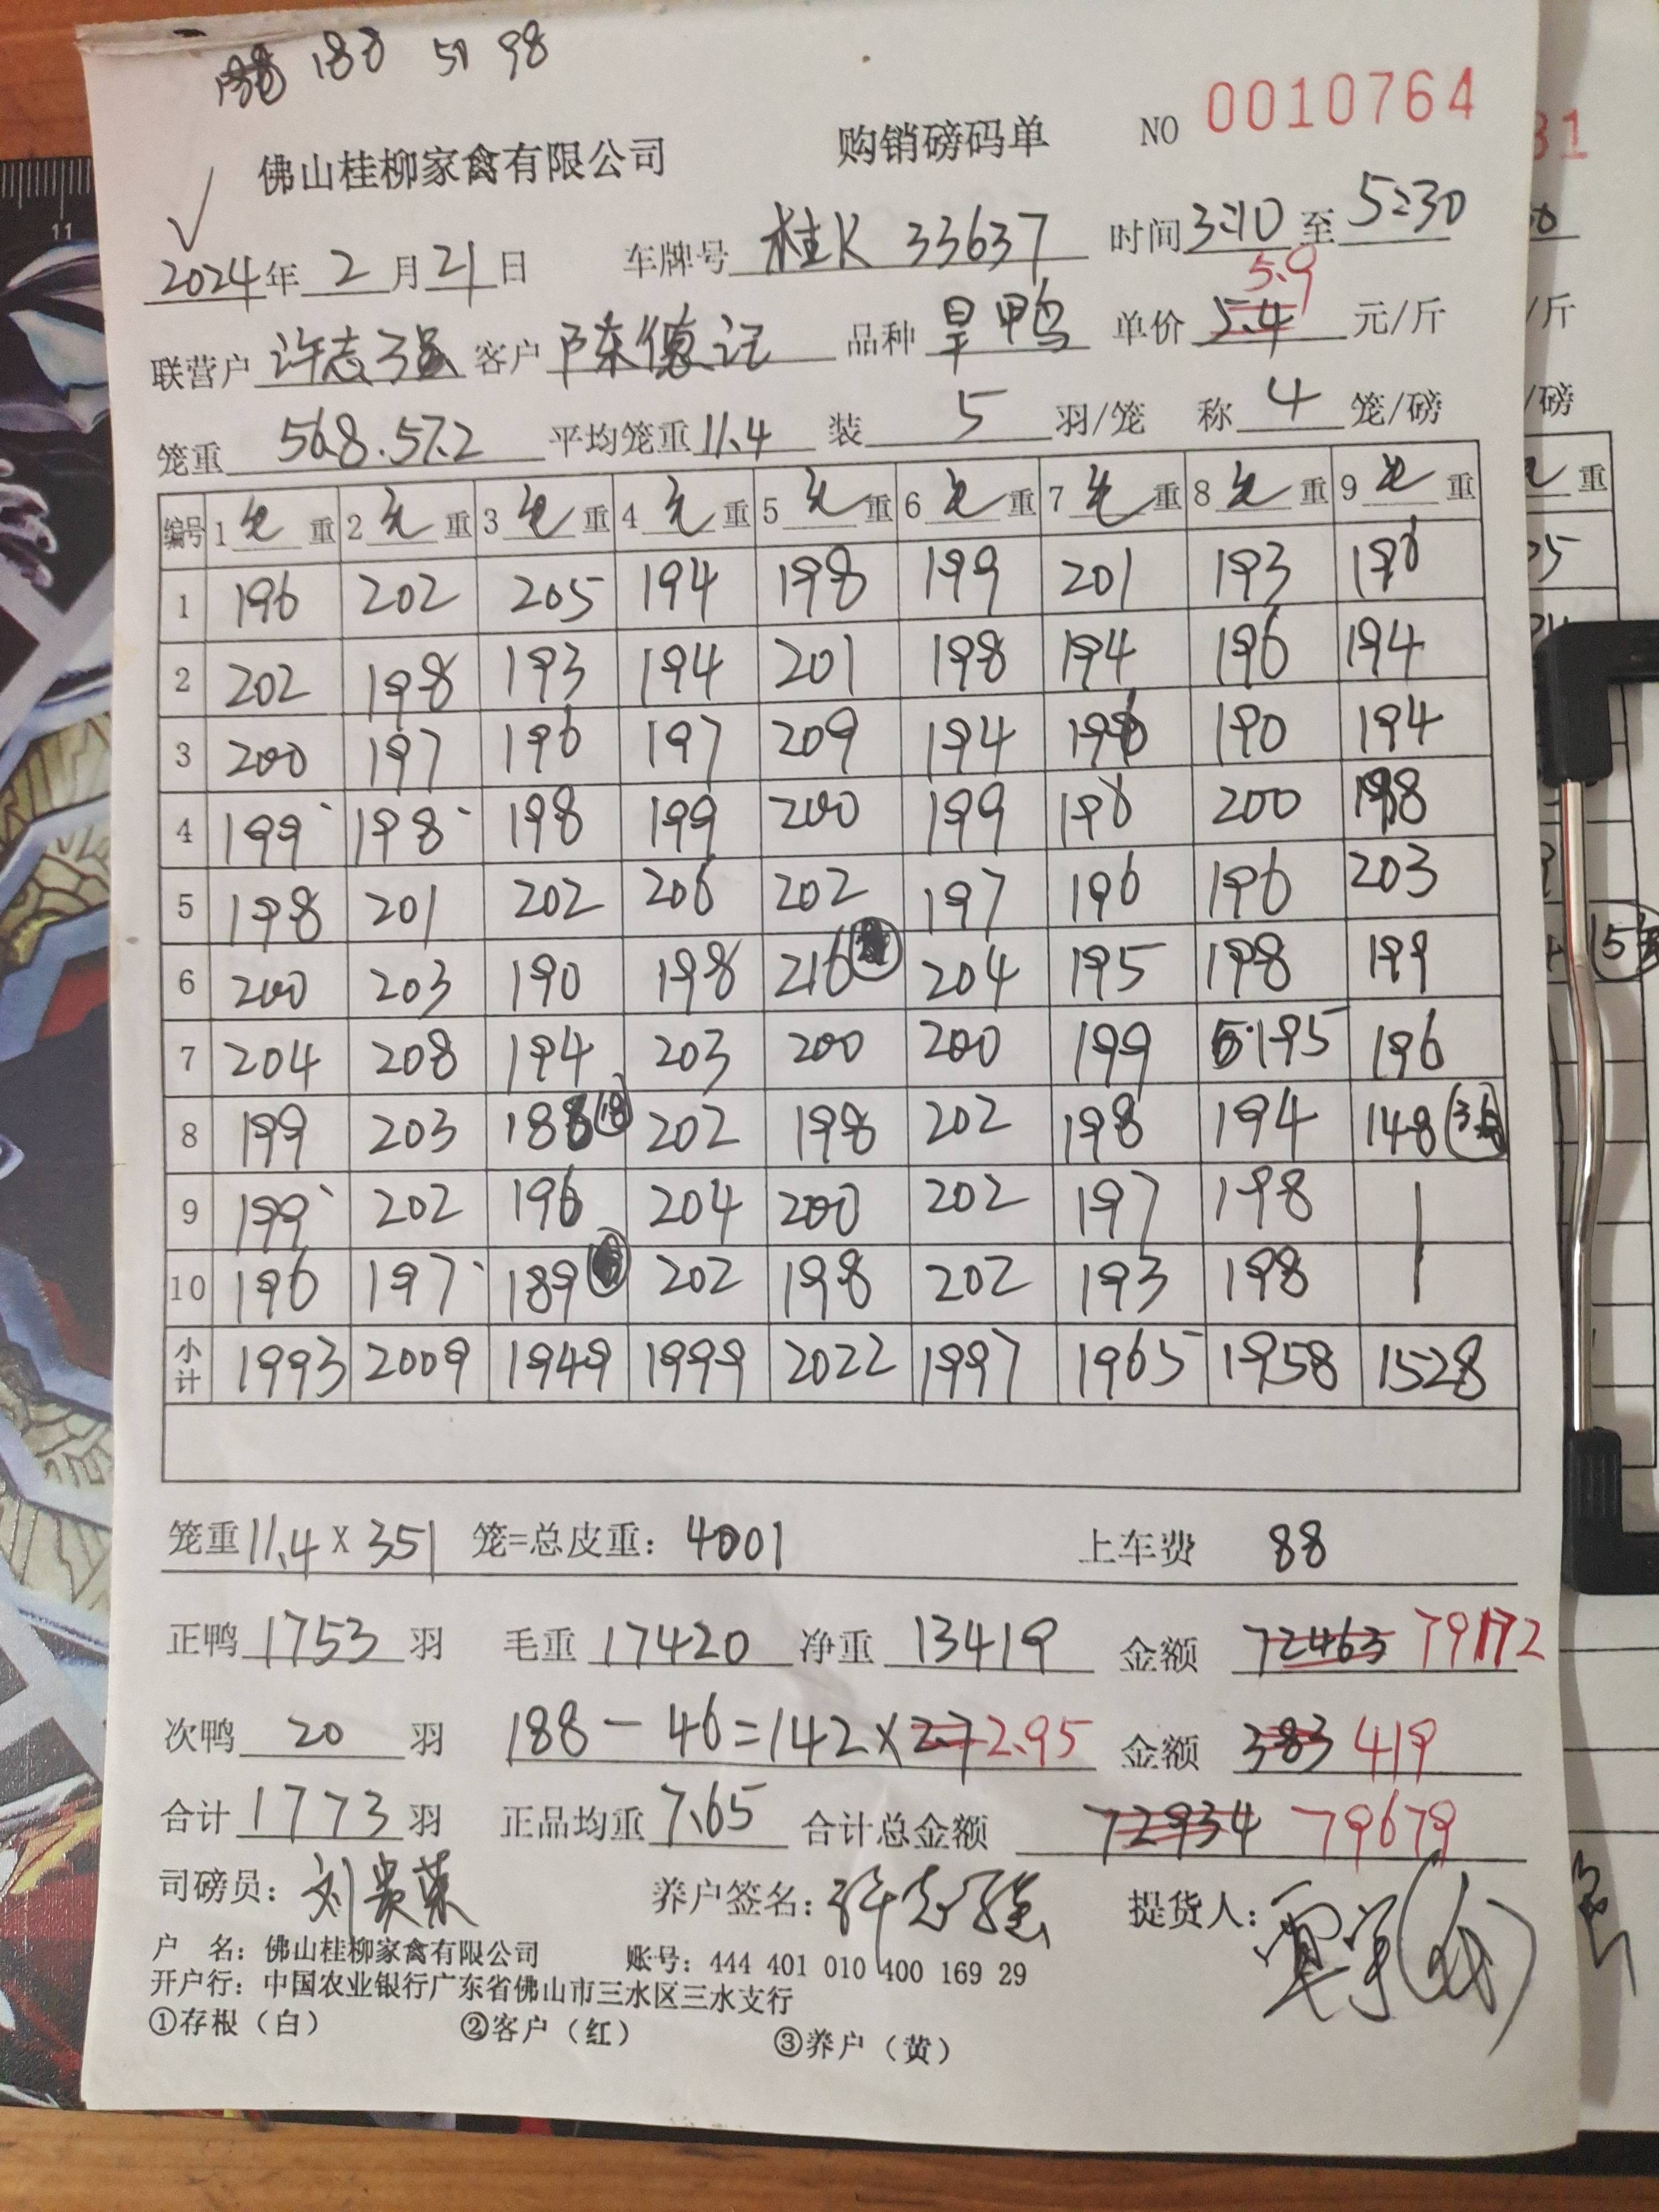 188 51 98
佛山桂柳家禽有限公司 购销磅码单 NO 0010764
2024年 2 月 21 日 车牌号 桂K 33637 时间 3:10 至 5:30
5.9
联营户 许志强 客户 陈德记 品种 旱鸭 单价 5.4 元/斤
笼重 56.8.57.2 平均笼重 11.4 装 5 羽/笼 称 4 笼/磅
编号 1 毛 重 2 毛 重 3 毛 重 4 毛 重 5 毛 重 6 毛 重 7 毛 重 8 毛 重 9 毛 重
1 196 202 205 194 198 199 201 193 196
2 202 198 193 194 201 198 194 196 194
3 200 197 196 197 209 194 196 190 194
4 199 198 198 199 200 199 196 200 198
5 198 201 202 206 202 197 196 196 203
6 200 203 190 198 216 204 195 198 199
7 204 208 194 203 200 200 199 195 196
8 199 203 188 202 198 202 198 194 148
9 199 202 196 204 200 202 197 198
10 196 197 189 202 198 202 193 198
小计 1993 2009 1949 1999 2022 1997 1965 1958 1528
笼重 11.4 X 351 笼=总皮重: 4001 上车费 88
正鸭 1753 羽 毛重 17420 净重 13419 金额 72463 79172
次鸭 20 羽 188 - 46 = 142 × 2.7 2.95 金额 383 419
合计 1773 羽 正品均重 7.65 合计总金额 72934 79679
司磅员: 刘贵荣 养户签名: 许志强 提货人:
户 名: 佛山桂柳家禽有限公司 账号: 444 401 010 400 169 29
开户行: 中国农业银行广东省佛山市三水区三水支行
①存根(白) ②客户(红) ③养户(黄)